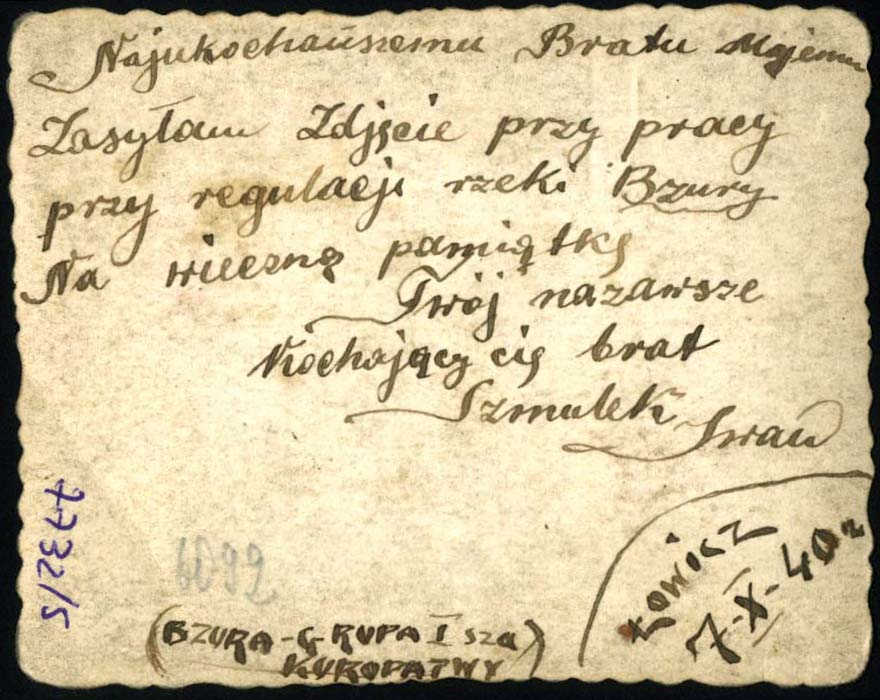 Najukochańszemu Bratu Mojemu
Zasyłam Zdjęcie przy pracy
przy regulacji rzeki Bzury
Na wieczną pamiątkę
Twój nazawsze
Kochający cię brat
Szmulek Iwań
Łowicz
7-X-40 r
(BZURA-GRUPA I sza)
KUROPATWY
6092
7732/5